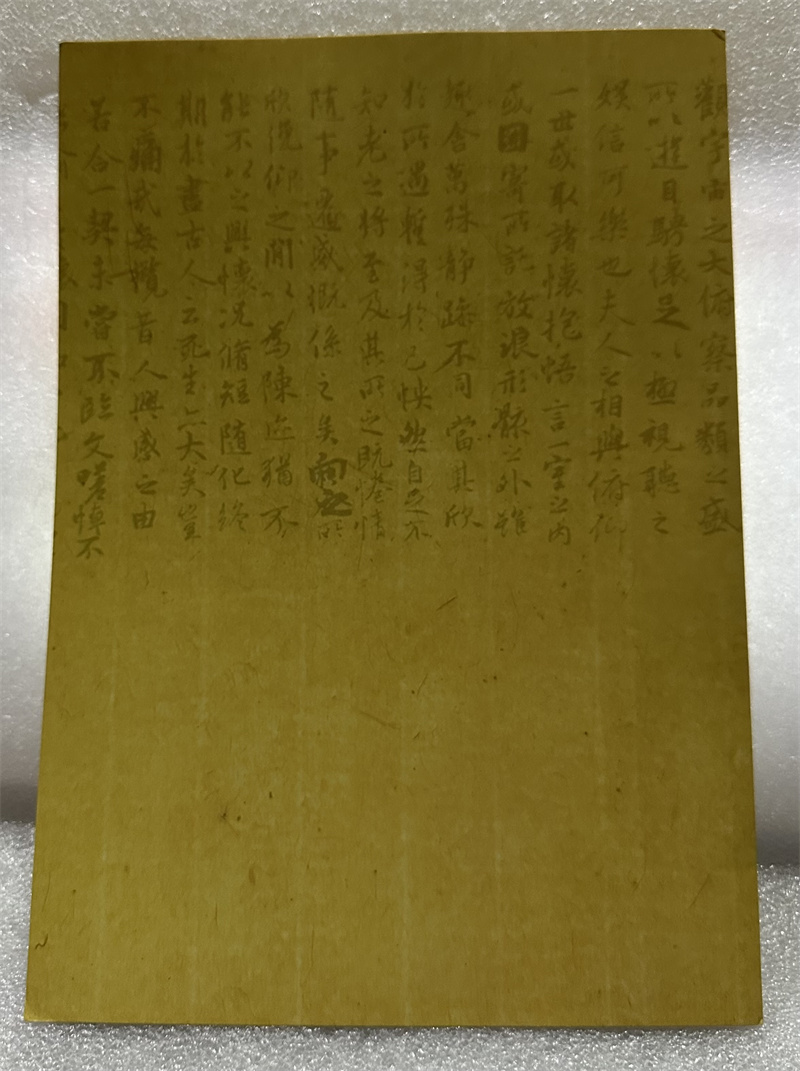 觀宇宙之大俯察品類之盛
所以遊目騁懷足以極視聽之
娛信可樂也夫人之相與俯仰
一世或取諸懷抱悟言一室之內
或因寄所託放浪形骸之外雖
趣舍萬殊靜躁不同當其欣
於所遇暫得於己怏然自足不
知老之將至及其所之既惓情
隨事遷感慨係之矣向之所
欣俛仰之閒以為陳迹猶不
能不以之興懷況脩短隨化終
期於盡古人云死生亦大矣豈
不痛哉每攬昔人興感之由
若合一契未嘗不臨文嗟悼不